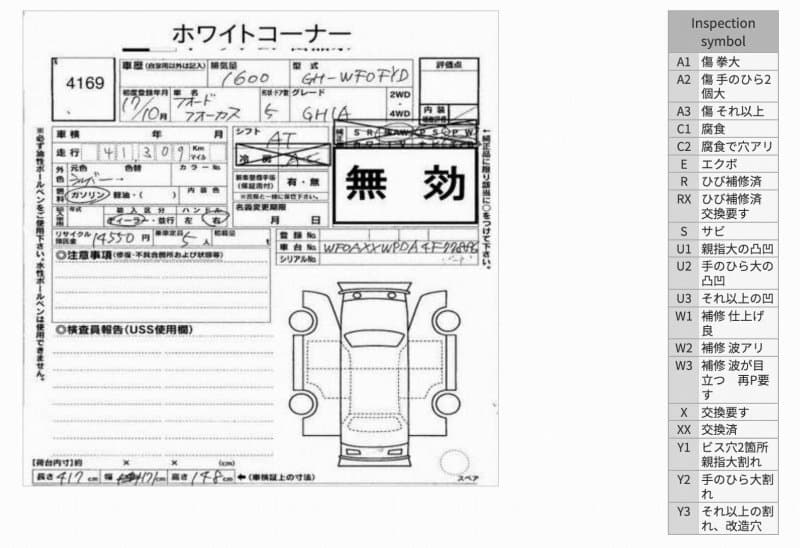 ホワイトコーナー
4169
車歴(自家用以外は記入)
排気量
1600
型 式
GH-WF0FYD
評価点
初度登録年月
17/10月
車 名
フォード
フォーカス
形状・ドア数
5
グレード
GHIA
2WD
・
4WD
内 装
車 検 年 月
シフト
AT
冷 房
走 行 41,309 Km マイル
無 効
外色
元色
シルバー→
色替
カラーNo
燃料
ガソリン・軽油・( )
内 装 色
有・無
名義変更期限
月 日
年式
輸 入 区 分
ディーラー・並行
ハ ン ド ル
左 右
リサイクル預託金
14550 円
乗車定員
5 人
積載量
t
登 録 No.
車 台 No.
シリアルNo.
※必ず油性ボールペンをご使用下さい。水性ボールペンは使用できません。
↑純正品に限り該当に○をつけて下さい。
◎注意事項(修復・不具合箇所および状態等)
◎検査員報告(USS使用欄)
【荷台内寸】約 × × (cm)
長さ 417 cm 幅 171 cm 高さ 148 cm ←(車検証上の寸法)
スペア
Inspection
symbol
A1 傷 拳大
A2 傷 手のひら2
個大
A3 傷 それ以上
C1 腐食
C2 腐食で穴アリ
E エクボ
R ひび補修済
RX ひび補修済
交換要す
S サビ
U1 親指大の凸凹
U2 手のひら大の
凸凹
U3 それ以上の凹
W1 補修 仕上げ
良
W2 補修 波アリ
W3 補修 波が目
立つ 再P要
す
X 交換要す
XX 交換済
Y1 ビス穴2箇所
親指大割れ
Y2 手のひら大割
れ
Y3 それ以上の割
れ、改造穴